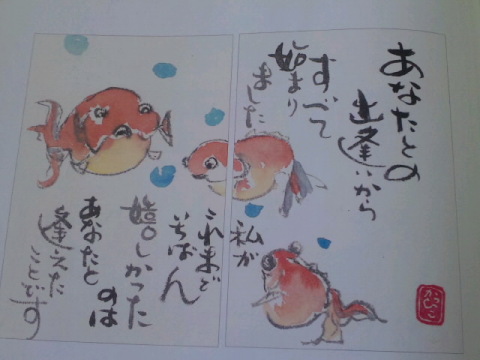 あなたとの
出逢いから
すべて
始まり
ました
私が
これまで
いちばん
嬉しかった
のは
あなたと
逢えた
ことです
かつひこ